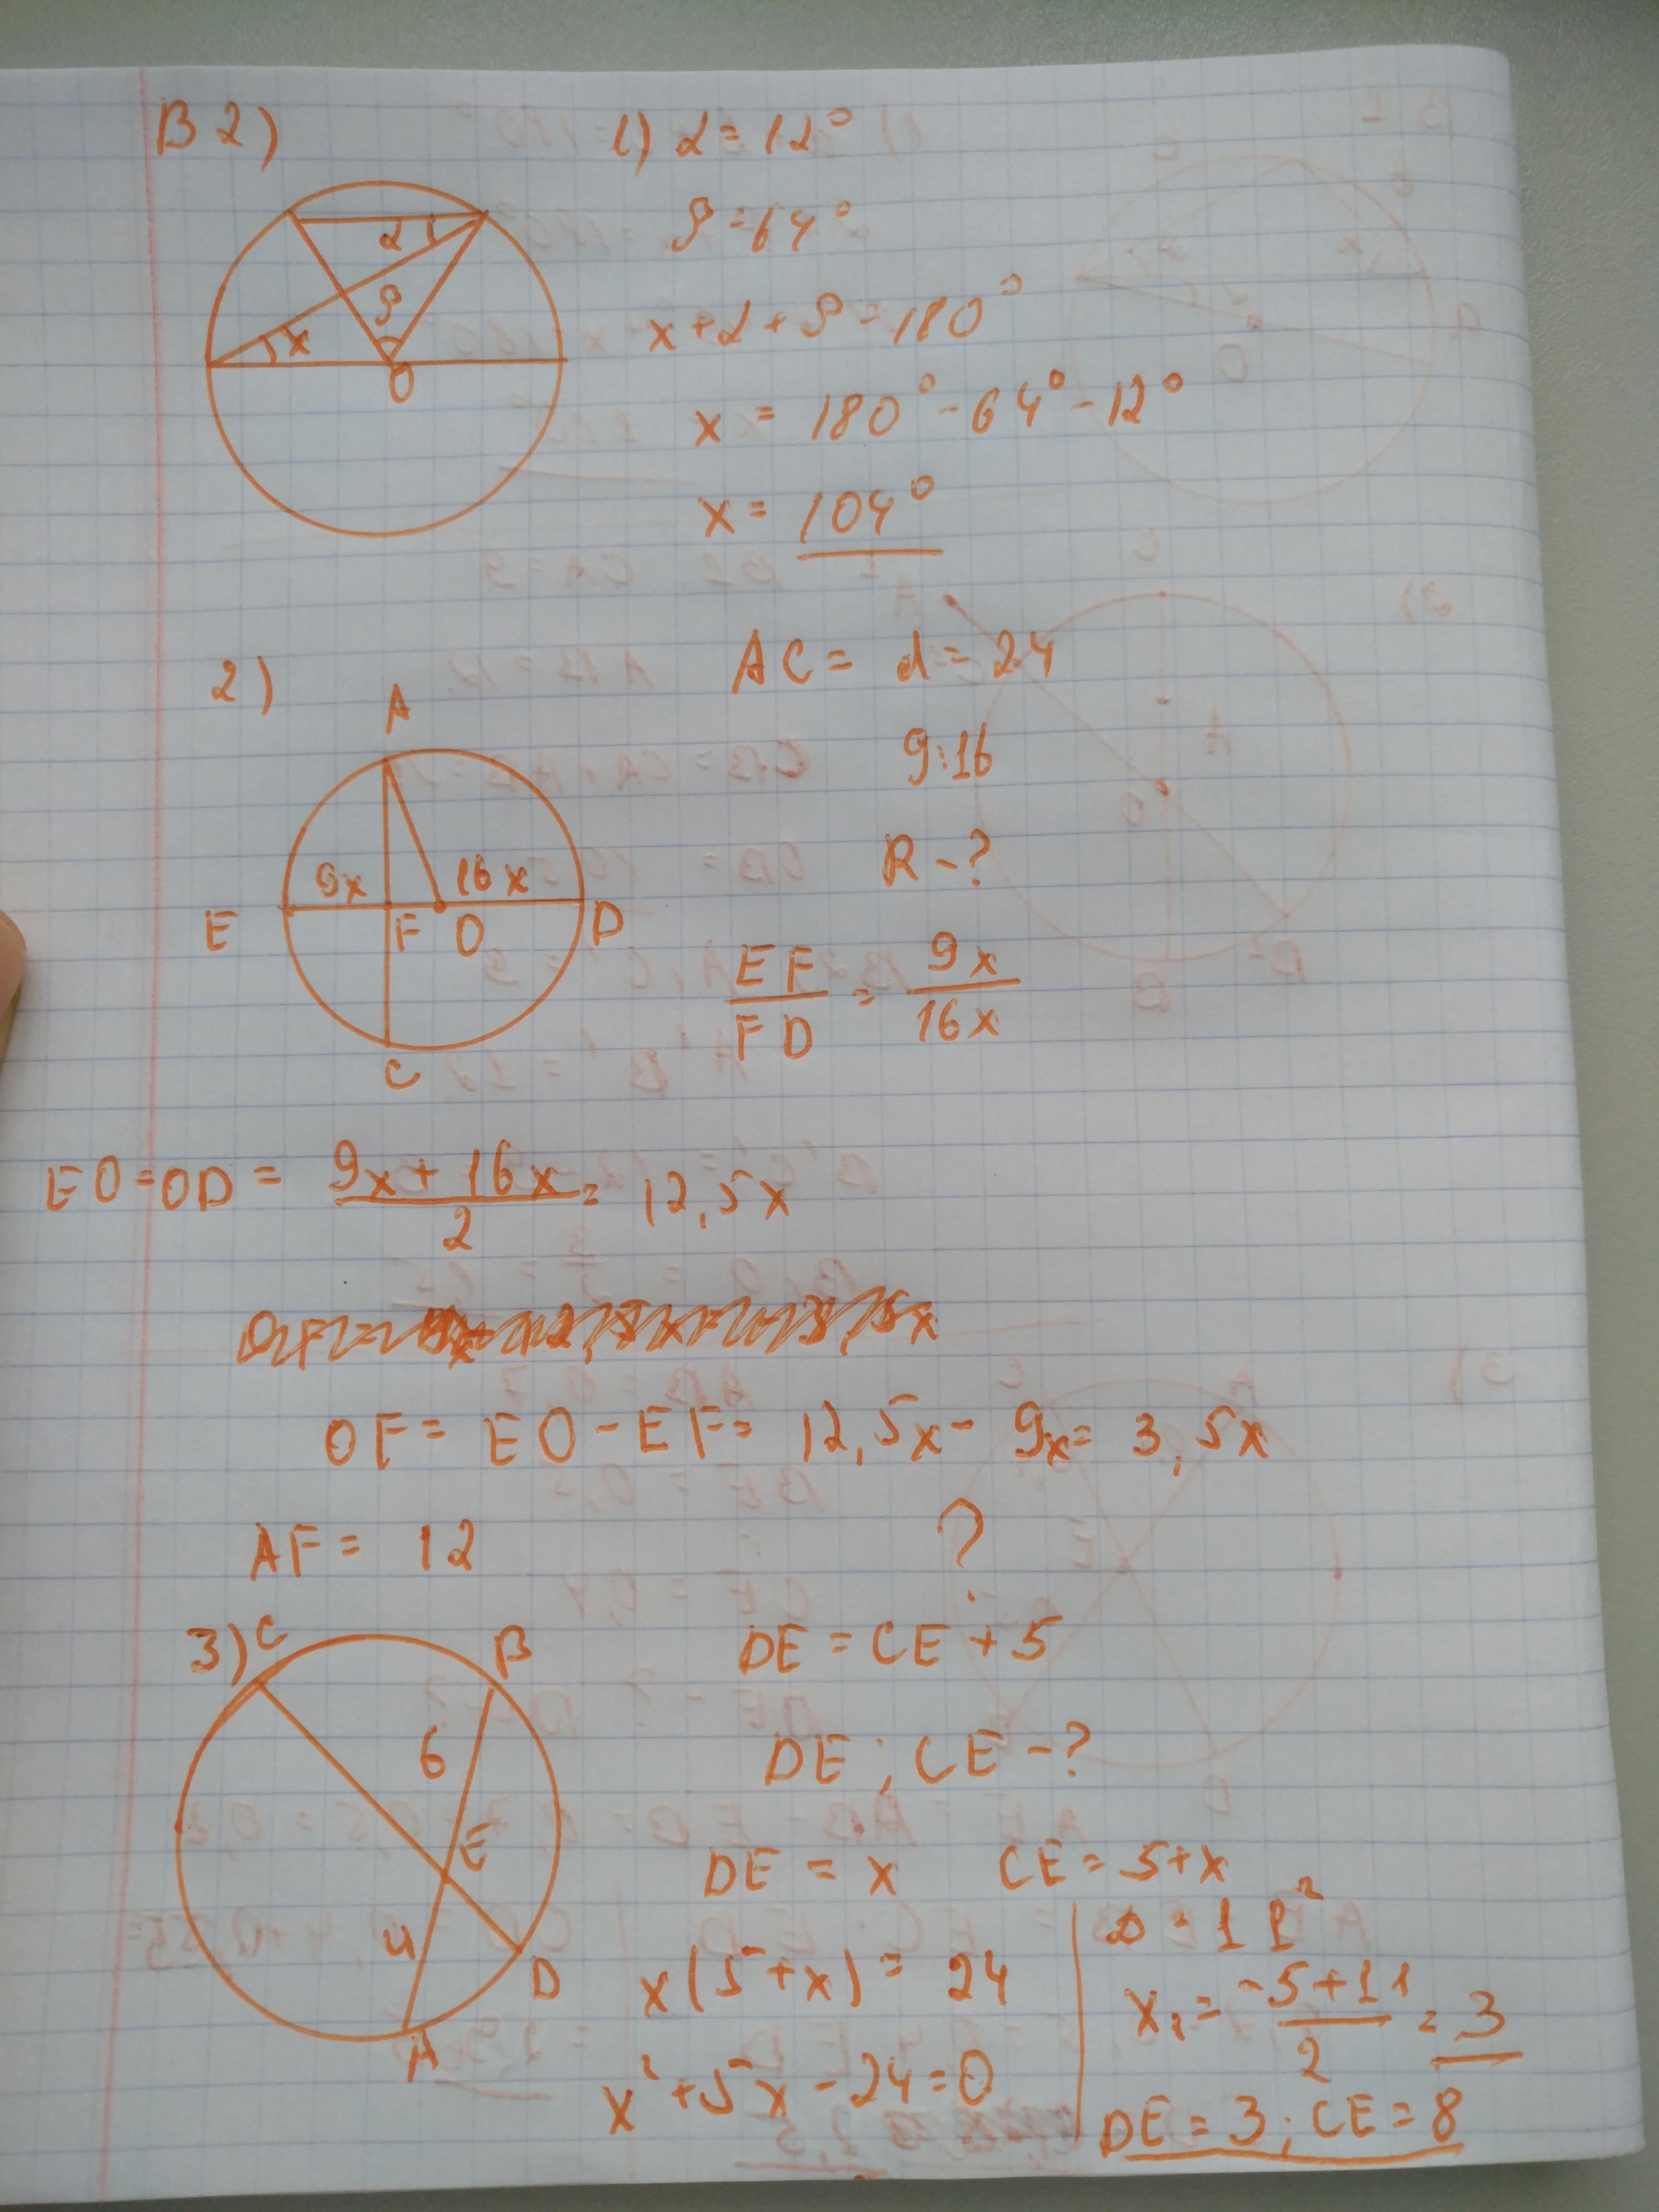 В 2)
1) α = 12°
β = 64°
α
β
x
O
x + α + β = 180°
x = 180° - 64° - 12°
x = 104°
2)
AC = d = 24
9:16
R - ?
A
9x
16x
E
F
O
D
C
EF/FD = 9x/16x
EO = OD = (9x + 16x)/2 = 12,5x
OF = EO - EF = 12,5x - 9x = 3,5x
AF = 12
?
3)
C
B
6
E
4
D
A
DE = CE + 5
DE ; CE - ?
DE = x CE = 5+x
x(5+x) = 24
x² + 5x - 24 = 0
D = 11²
x₁ = (-5+11)/2 = 3
DE = 3 ; CE = 8